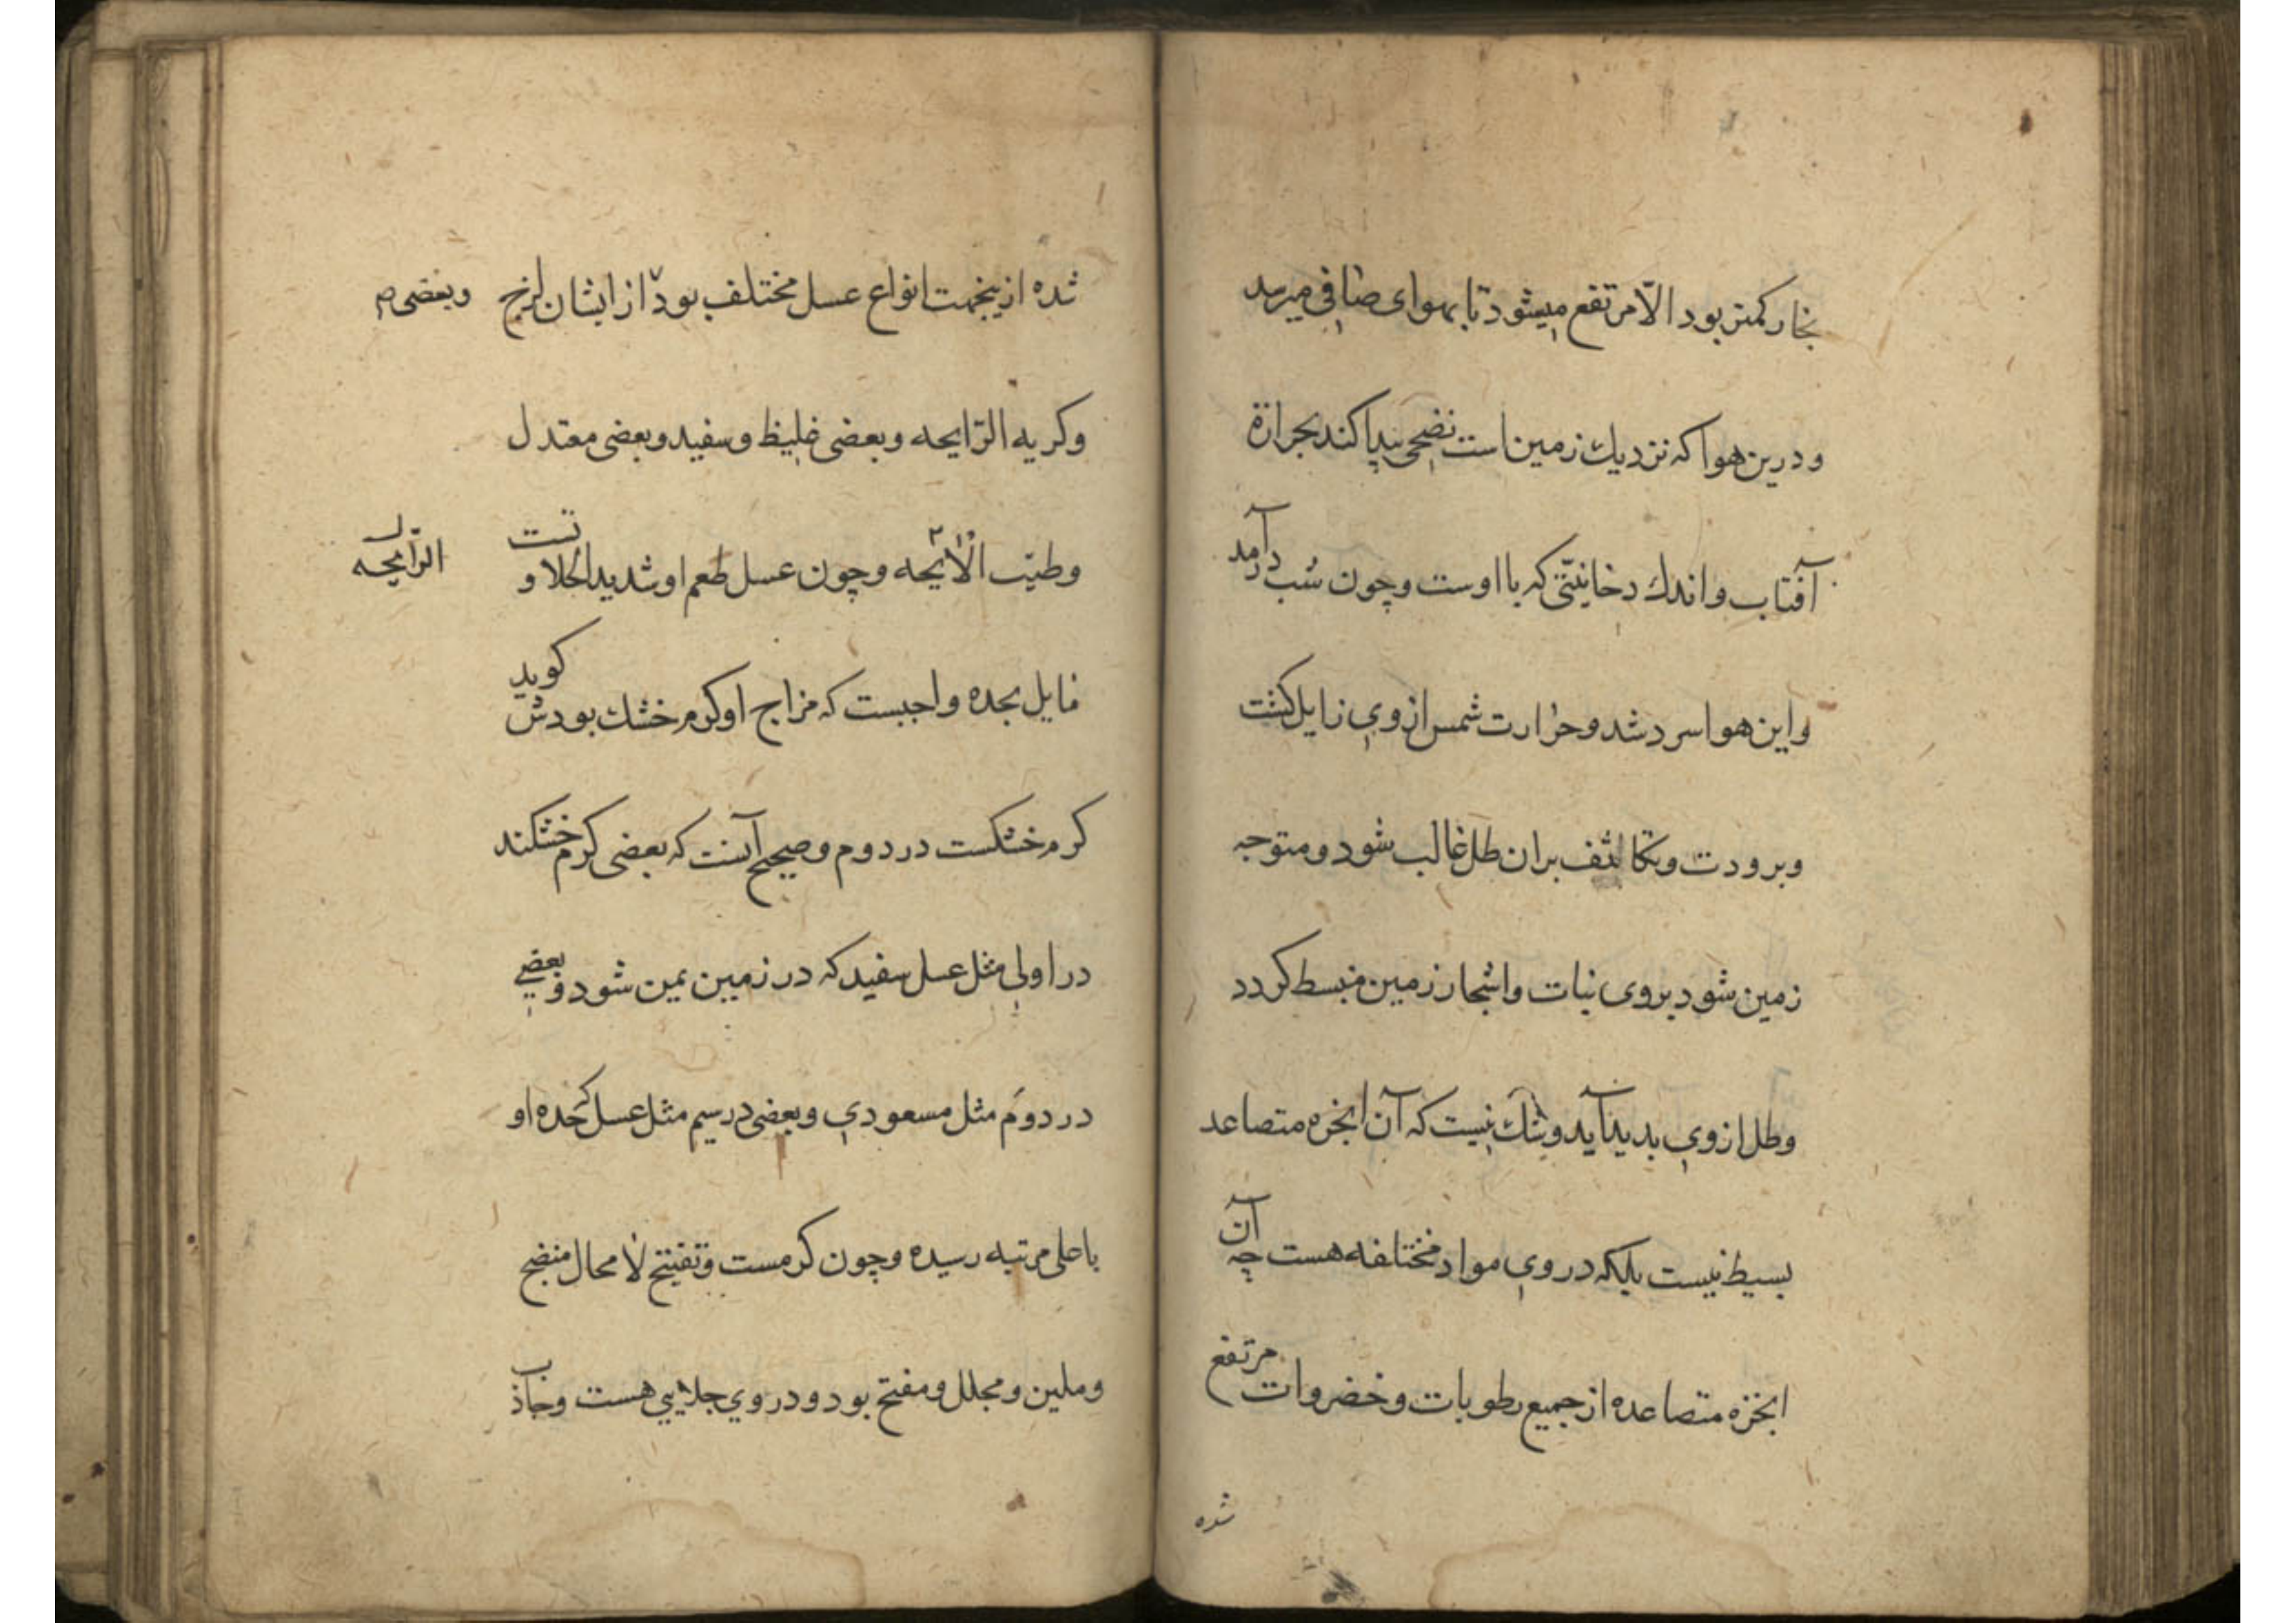 بخار کمتر بود الّا مرتفع میشود تا بهوای صافی میرسد
و درین هوا که نزدیك زمین است نضجی پیدا کند بحرارة
آفتاب و اندك دخانیّتی که با اوست و چون شب درآمد
و این هوا سرد شد و حرارت شمس از وی زایل کشت
و برودت و تکاثف بران طل غالب شود و متوجه
زمین شود بروی نبات و اشجار زمین منبسط کردد
و طل از وی بدید آید و شك نیست که آن ابخره متصاعد
بسیط نیست بلکه در وی مواد مختلفه هست چه آن
ابخره متصاعده از جمیع رطوبات و خضروات مرتفع
شده
شده ازینجهت انواع عسل مختلف بود از ایشان لزج و بعضی
و کریه الرّایحه و بعضی غلیظ و سفید و بعضی معتدل
و طیّب الایحه و چون عسل طعم او شدید الحلاوتست
الرّایحه
مایل بحده واجبست که مزاج او کرم خشك بود شکوید
کرم خشکست در دوم و صحیح آنست که بعضی کرم خشکند
در اولی مثل عسل سفید که در زمین یمن شود و بعضی
در دوم مثل مسعودی و بعضی در سیم مثل عسل که حده او
باعلی مرتبه رسیده و چون کرمست و تفتیح لا محال منضج
و ملین و محلل و مفتح بود و در وی جلایی هست و جاذب